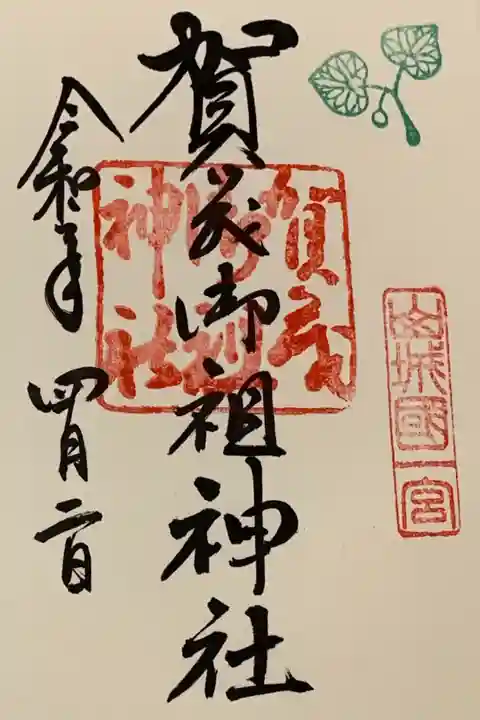 山城國一宮
賀茂御祖神社
賀茂
御祖
神社
令和二年
四月二日